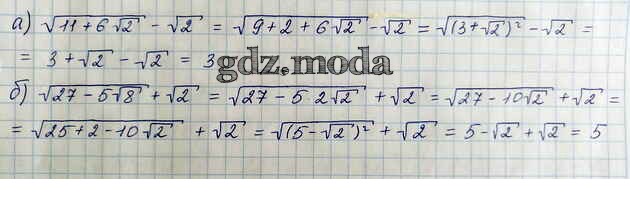 а) √(11+6√2) - √2 = √(9+2+6√2) - √2 = √((3+√2)²) - √2 =
= 3+√2 - √2 = 3
gdz.moda
б) √(27-5√8) + √2 = √(27-5·2√2) + √2 = √(27-10√2) + √2 =
= √(25+2-10√2) + √2 = √((5-√2)²) + √2 = 5-√2+√2 = 5